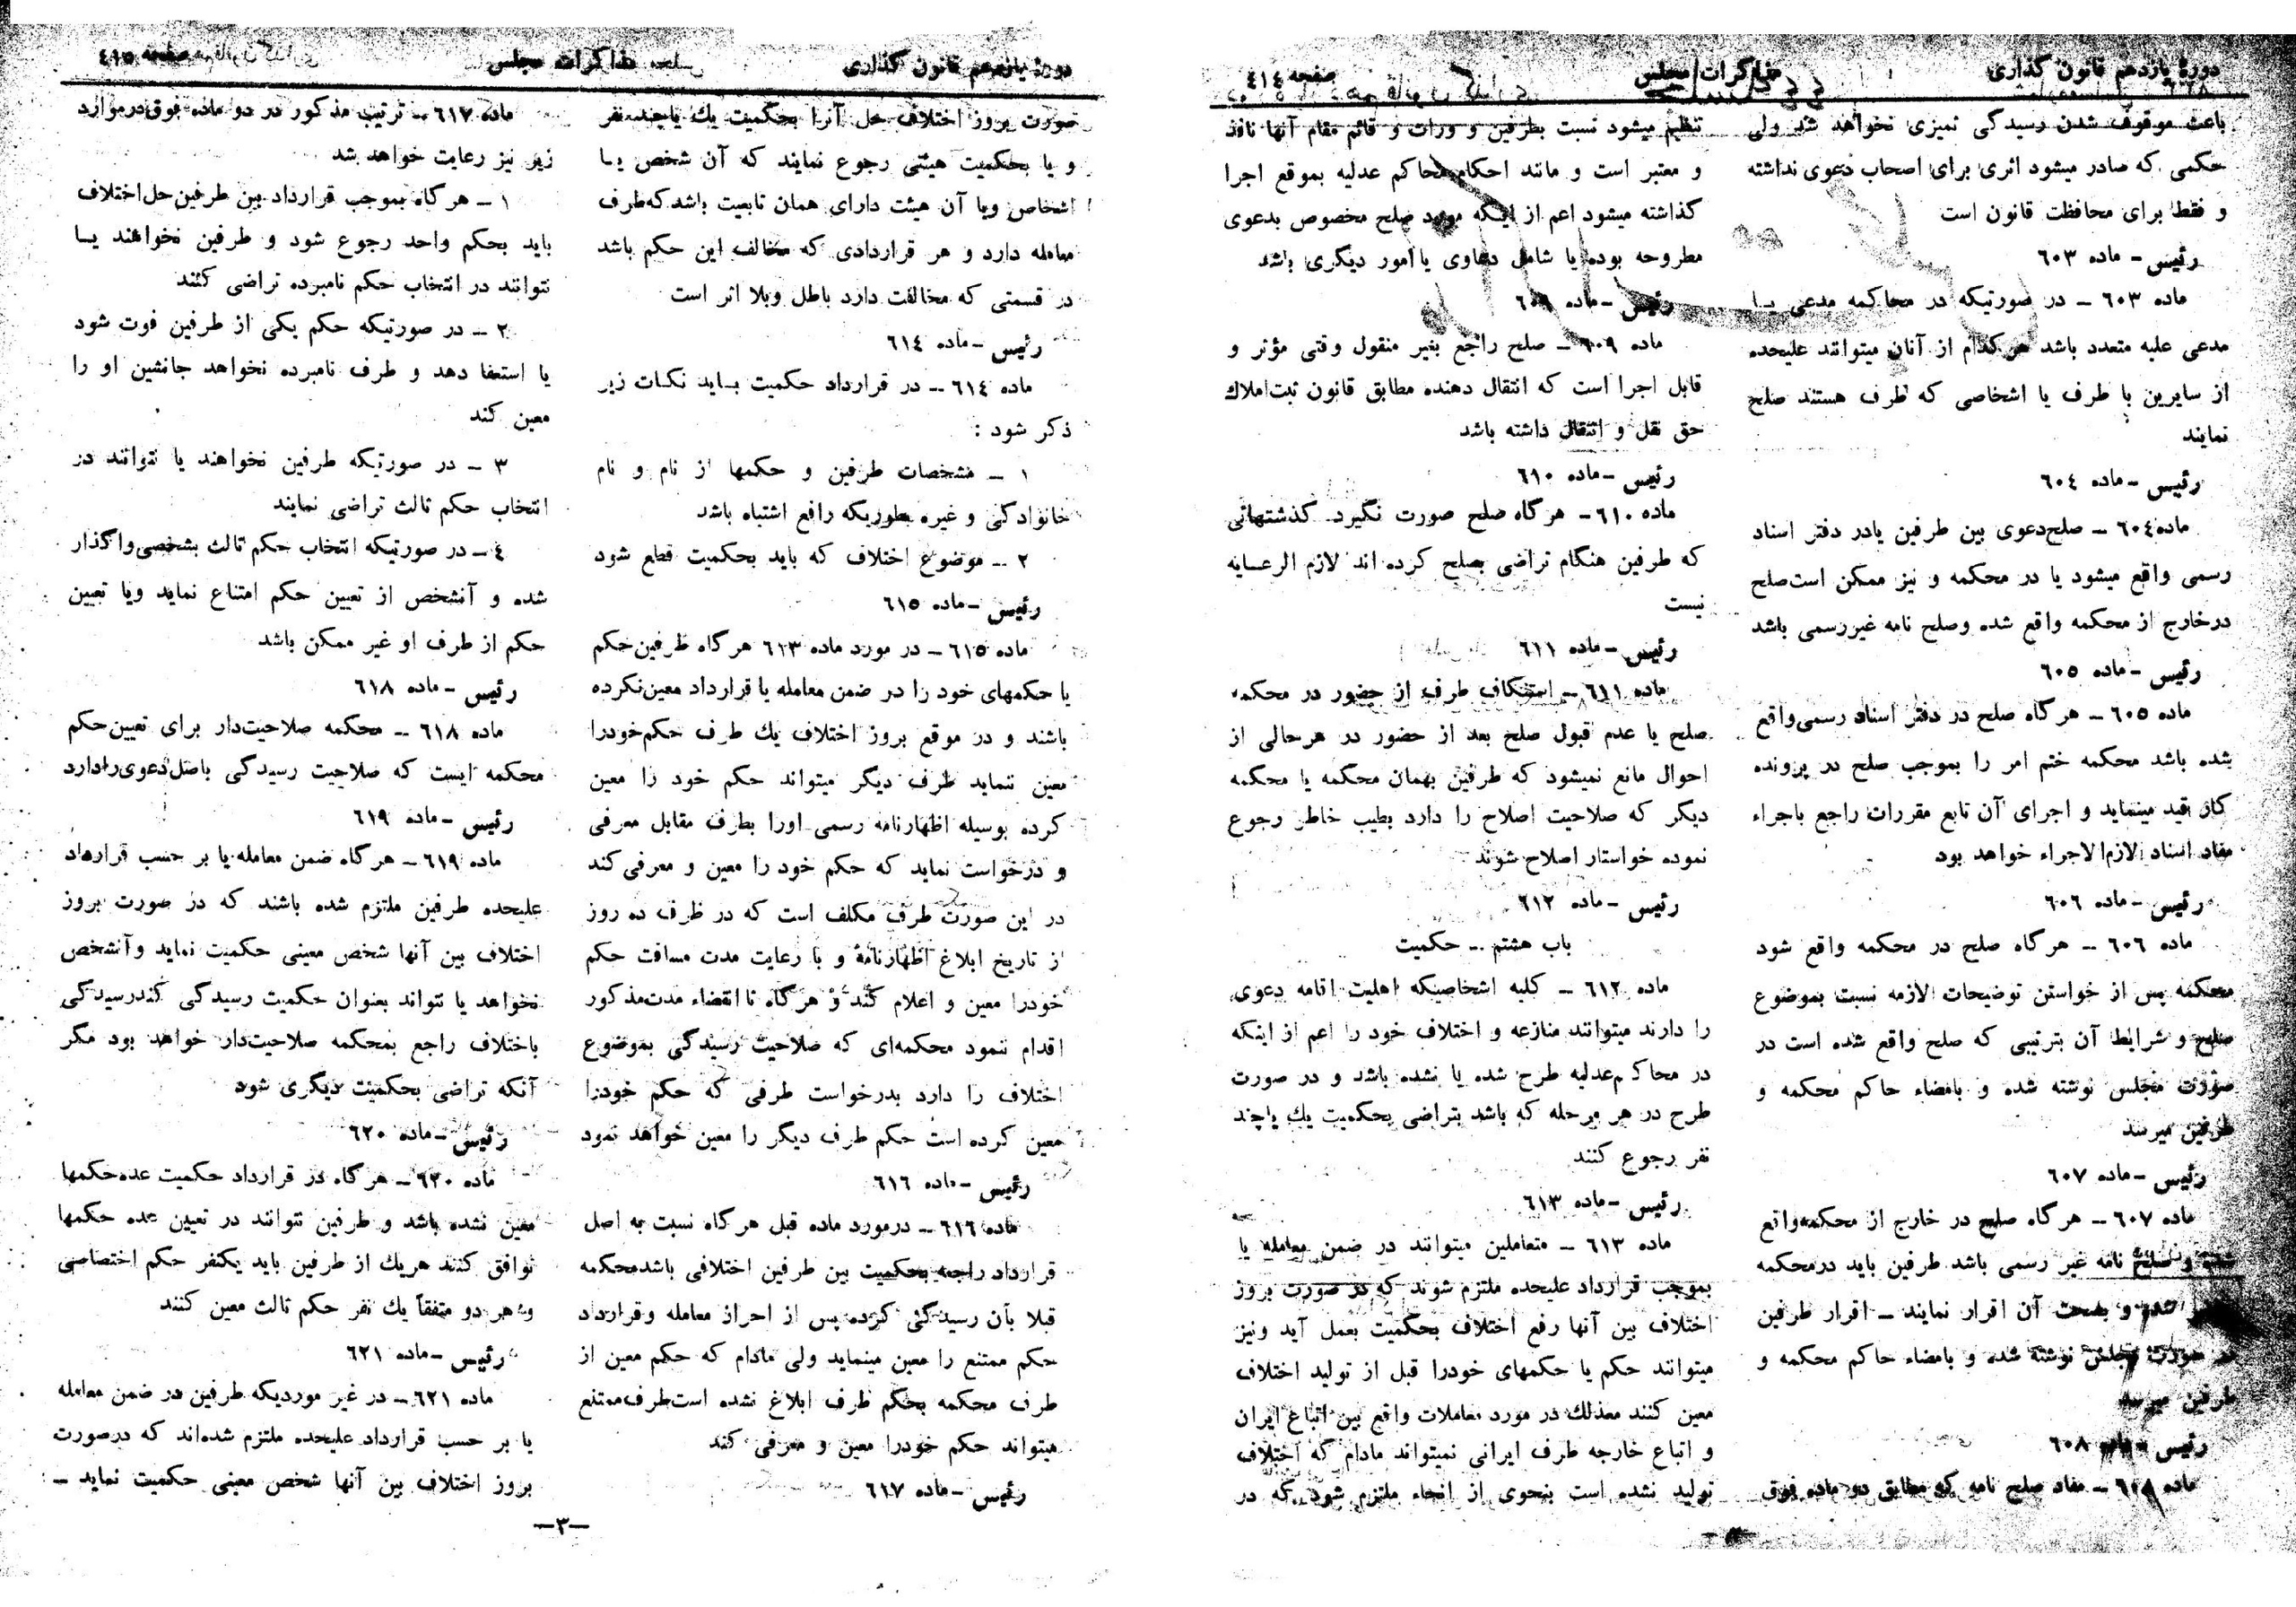 دورهٔ یازدهم قانون گذاری
مذاکرات مجلس
صفحه ٤١٤
باعث موقوف شدن رسیدگی تمیزی نخواهد شد ولی
حکمی که صادر میشود اثری برای اصحاب دعوی نداشته
و فقط برای محافظت قانون است
رئیس - ماده ٦٠٣
ماده ٦٠٣ - در صورتیکه در محاکمه مدعی یا
مدعی علیه متعدد باشد هرکدام از آنان میتوانند علیحده
از سایرین با طرف یا اشخاصی که طرف هستند صلح
نمایند
رئیس - ماده ٦٠٤
ماده ٦٠٤ - صلح دعوی بین طرفین یا در دفتر اسناد
رسمی واقع میشود یا در محکمه و نیز ممکن است صلح
در خارج از محکمه واقع شده و صلح نامه غیر رسمی باشد
رئیس - ماده ٦٠٥
ماده ٦٠٥ - هر گاه صلح در دفتر اسناد رسمی واقع
شده باشد محکمه ختم امر را بموجب صلح در پرونده
کار قید مینماید و اجرای آن تابع مقررات راجع باجراء
مفاد اسناد لازم الاجراء خواهد بود
رئیس - ماده ٦٠٦
ماده ٦٠٦ - هر گاه صلح در محکمه واقع شود
محکمه پس از خواستن توضیحات لازمه نسبت بموضوع
صلح و شرایط آن بترتیبی که صلح واقع شده است در
صورت مجلس نوشته شده و بامضاء حاکم محکمه و
طرفین میرسد
رئیس - ماده ٦٠٧
ماده ٦٠٧ - هر گاه صلح در خارج از محکمه واقع
شده و صلح نامه غیر رسمی باشد طرفین باید در محکمه
شده و بصحت آن اقرار نمایند - اقرار طرفین
در صورت مجلس نوشته شده و بامضاء حاکم محکمه و
طرفین میرسد
رئیس - ماده ٦٠٨
ماده ٦٠٨ - مفاد صلح نامه که مطابق دو ماده فوق
تنظیم میشود نسبت بطرفین و وراث و قائم مقام آنها نافذ
و معتبر است و مانند احکام محاکم عدلیه بموقع اجرا
گذاشته میشود اعم از اینکه مورد صلح مخصوص بدعوی
مطروحه بوده یا شامل دعاوی یا امور دیگری باشد
رئیس - ماده ٦٠٩
ماده ٦٠٩ - صلح راجع بغیر منقول وقتی مؤثر و
قابل اجرا است که انتقال دهنده مطابق قانون ثبت املاك
حق نقل و انتقال داشته باشد
رئیس - ماده ٦١٠
ماده ٦١٠ - هر گاه صلح صورت نگیرد گذشتهائی
که طرفین هنگام تراضی بصلح کرده اند لازم الرعایه
نیست
رئیس - ماده ٦١١
ماده ٦١١ - استنکاف طرف از حضور در محکمه
صلح یا عدم قبول صلح بعد از حضور در هر حالی از
احوال مانع نمیشود که طرفین بهمان محکمه یا محکمه
دیگر که صلاحیت اصلاح را دارد بطیب خاطر رجوع
نموده خواستار اصلاح شوند
رئیس - ماده ٦١٢
باب هشتم - حکمیت
ماده ٦١٢ - کلیه اشخاصیکه اهلیت اقامه دعوی
را دارند میتوانند منازعه و اختلاف خود را اعم از اینکه
در محاکم عدلیه طرح شده یا نشده باشد و در صورت
طرح در هر مرحله که باشد بتراضی بحکمیت یك یا چند
نفر رجوع کنند
رئیس - ماده ٦١٣
ماده ٦١٣ - متعاملین میتوانند در ضمن معامله یا
بموجب قرارداد علیحده ملتزم شوند که در صورت بروز
اختلاف بین آنها رفع اختلاف بحکمیت بعمل آید و نیز
میتوانند حکم یا حکمهای خود را قبل از تولید اختلاف
معین کنند معذلك در مورد معاملات واقع بین اتباع ایران
و اتباع خارجه طرف ایرانی نمیتواند مادام که اختلاف
تولید نشده است بنحوی از انحاء ملتزم شود که در
دورهٔ یازدهم قانون گذاری
مذاکرات مجلس
صفحه ٤١٥
صورت بروز اختلاف حل آنرا بحکمیت یك یا چند نفر
و یا بحکمیت هیئتی رجوع نمایند که آن شخص یا
اشخاص و یا آن هیئت دارای همان تابعیت باشد که طرف
معامله دارد و هر قراردادی که مخالف این حکم باشد
در قسمتی که مخالفت دارد باطل و بلا اثر است
رئیس - ماده ٦١٤
ماده ٦١٤ - در قرارداد حکمیت باید نکات زیر
ذکر شود :
١ - مشخصات طرفین و حکمها از نام و نام
خانوادگی و غیره بطوریکه رافع اشتباه باشد
٢ - موضوع اختلاف که باید بحکمیت قطع شود
رئیس - ماده ٦١٥
ماده ٦١٥ - در مورد ماده ٦١٣ هر گاه طرفین حکم
یا حکمهای خود را در ضمن معامله یا قرارداد معین نکرده
باشند و در موقع بروز اختلاف یك طرف حکم خود را
معین ننماید طرف دیگر میتواند حکم خود را معین
کرده بوسیله اظهارنامه رسمی او را بطرف مقابل معرفی
و درخواست نماید که حکم خود را معین و معرفی کند
در این صورت طرف مکلف است که در ظرف ده روز
از تاریخ ابلاغ اظهارنامه و با رعایت مدت مسافت حکم
خود را معین و اعلام کند و هر گاه تا انقضاء مدت مذکور
اقدام ننمود محکمه‌ای که صلاحیت رسیدگی بموضوع
اختلاف را دارد بدرخواست طرفی که حکم خود را
معین کرده است حکم طرف دیگر را معین خواهد نمود
رئیس - ماده ٦١٦
ماده ٦١٦ - در مورد ماده قبل هر گاه نسبت به اصل
قرارداد راجعه بحکمیت بین طرفین اختلافی باشد محکمه
قبلا بآن رسیدگی کرده پس از احراز معامله و قرارداد
حکم ممتنع را معین مینماید ولی مادام که حکم معین از
طرف محکمه بحکم طرف ابلاغ نشده است طرف ممتنع
میتواند حکم خود را معین و معرفی کند
رئیس - ماده ٦١٧
ماده ٦١٧ - ترتیب مذکور در دو ماده فوق در موارد
زیر نیز رعایت خواهد شد
١ - هر گاه بموجب قرارداد بین طرفین حل اختلاف
باید بحکم واحد رجوع شود و طرفین نخواهند یا
نتوانند در انتخاب حکم نامبرده تراضی کنند
٢ - در صورتیکه حکم یکی از طرفین فوت شود
یا استعفا دهد و طرف نامبرده نخواهد جانشین او را
معین کند
٣ - در صورتیکه طرفین نخواهند یا نتوانند در
انتخاب حکم ثالث تراضی نمایند
٤ - در صورتیکه انتخاب حکم ثالث بشخصی واگذار
شده و آنشخص از تعیین حکم امتناع نماید و یا تعیین
حکم از طرف او غیر ممکن باشد
رئیس - ماده ٦١٨
ماده ٦١٨ - محکمه صلاحیت‌دار برای تعیین حکم
محکمه ایست که صلاحیت رسیدگی باصل دعوی را دارد
رئیس - ماده ٦١٩
ماده ٦١٩ - هر گاه ضمن معامله یا بر حسب قرارداد
علیحده طرفین ملتزم شده باشند که در صورت بروز
اختلاف بین آنها شخص معینی حکمیت نماید و آنشخص
نخواهد یا نتواند بعنوان حکمیت رسیدگی کند رسیدگی
باختلاف راجع بمحکمه صلاحیت‌دار خواهد بود مگر
آنکه تراضی بحکمیت دیگری شود
رئیس - ماده ٦٢٠
ماده ٦٢٠ - هر گاه در قرارداد حکمیت عده حکمها
معین نشده باشد و طرفین نتوانند در تعیین عده حکمها
توافق کنند هر یك از طرفین باید یکنفر حکم اختصاصی
و هر دو متفقاً یك نفر حکم ثالث معین کنند
رئیس - ماده ٦٢١
ماده ٦٢١ - در غیر موردیکه طرفین در ضمن معامله
یا بر حسب قرارداد علیحده ملتزم شده‌اند که در صورت
بروز اختلاف بین آنها شخص معینی حکمیت نماید -
-٣-